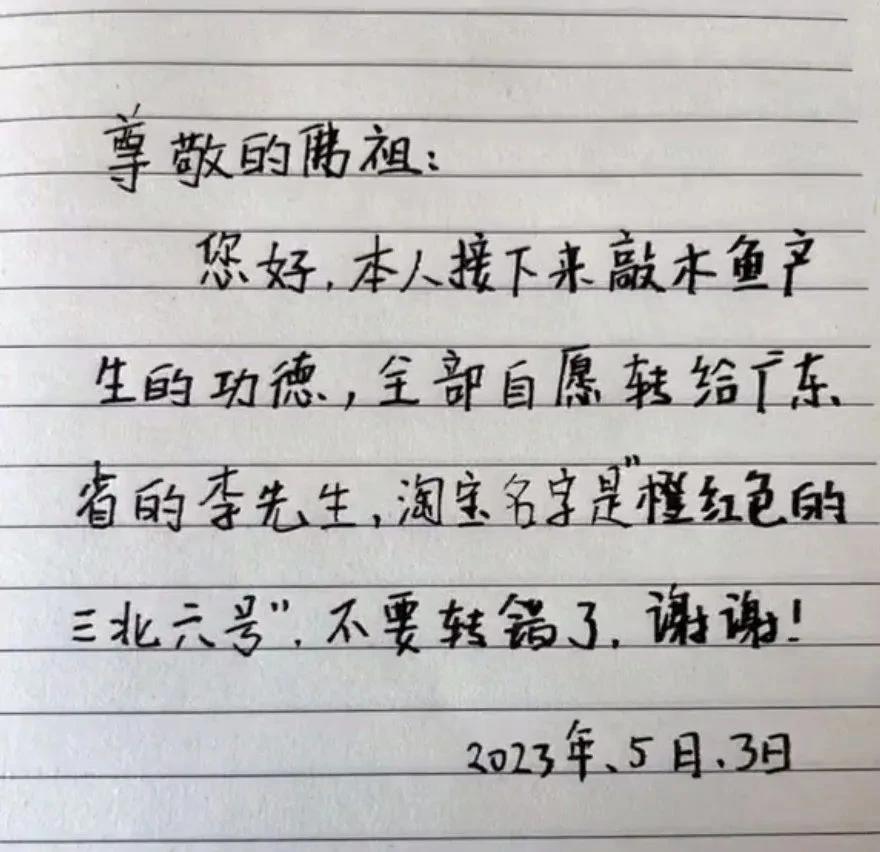 尊敬的佛祖:
您好,本人接下来敲木鱼产
生的功德,全部自愿转给广东
省的李先生,淘宝名字是"橙红色的
三北六号",不要转错了,谢谢!
2023年、5月、3日